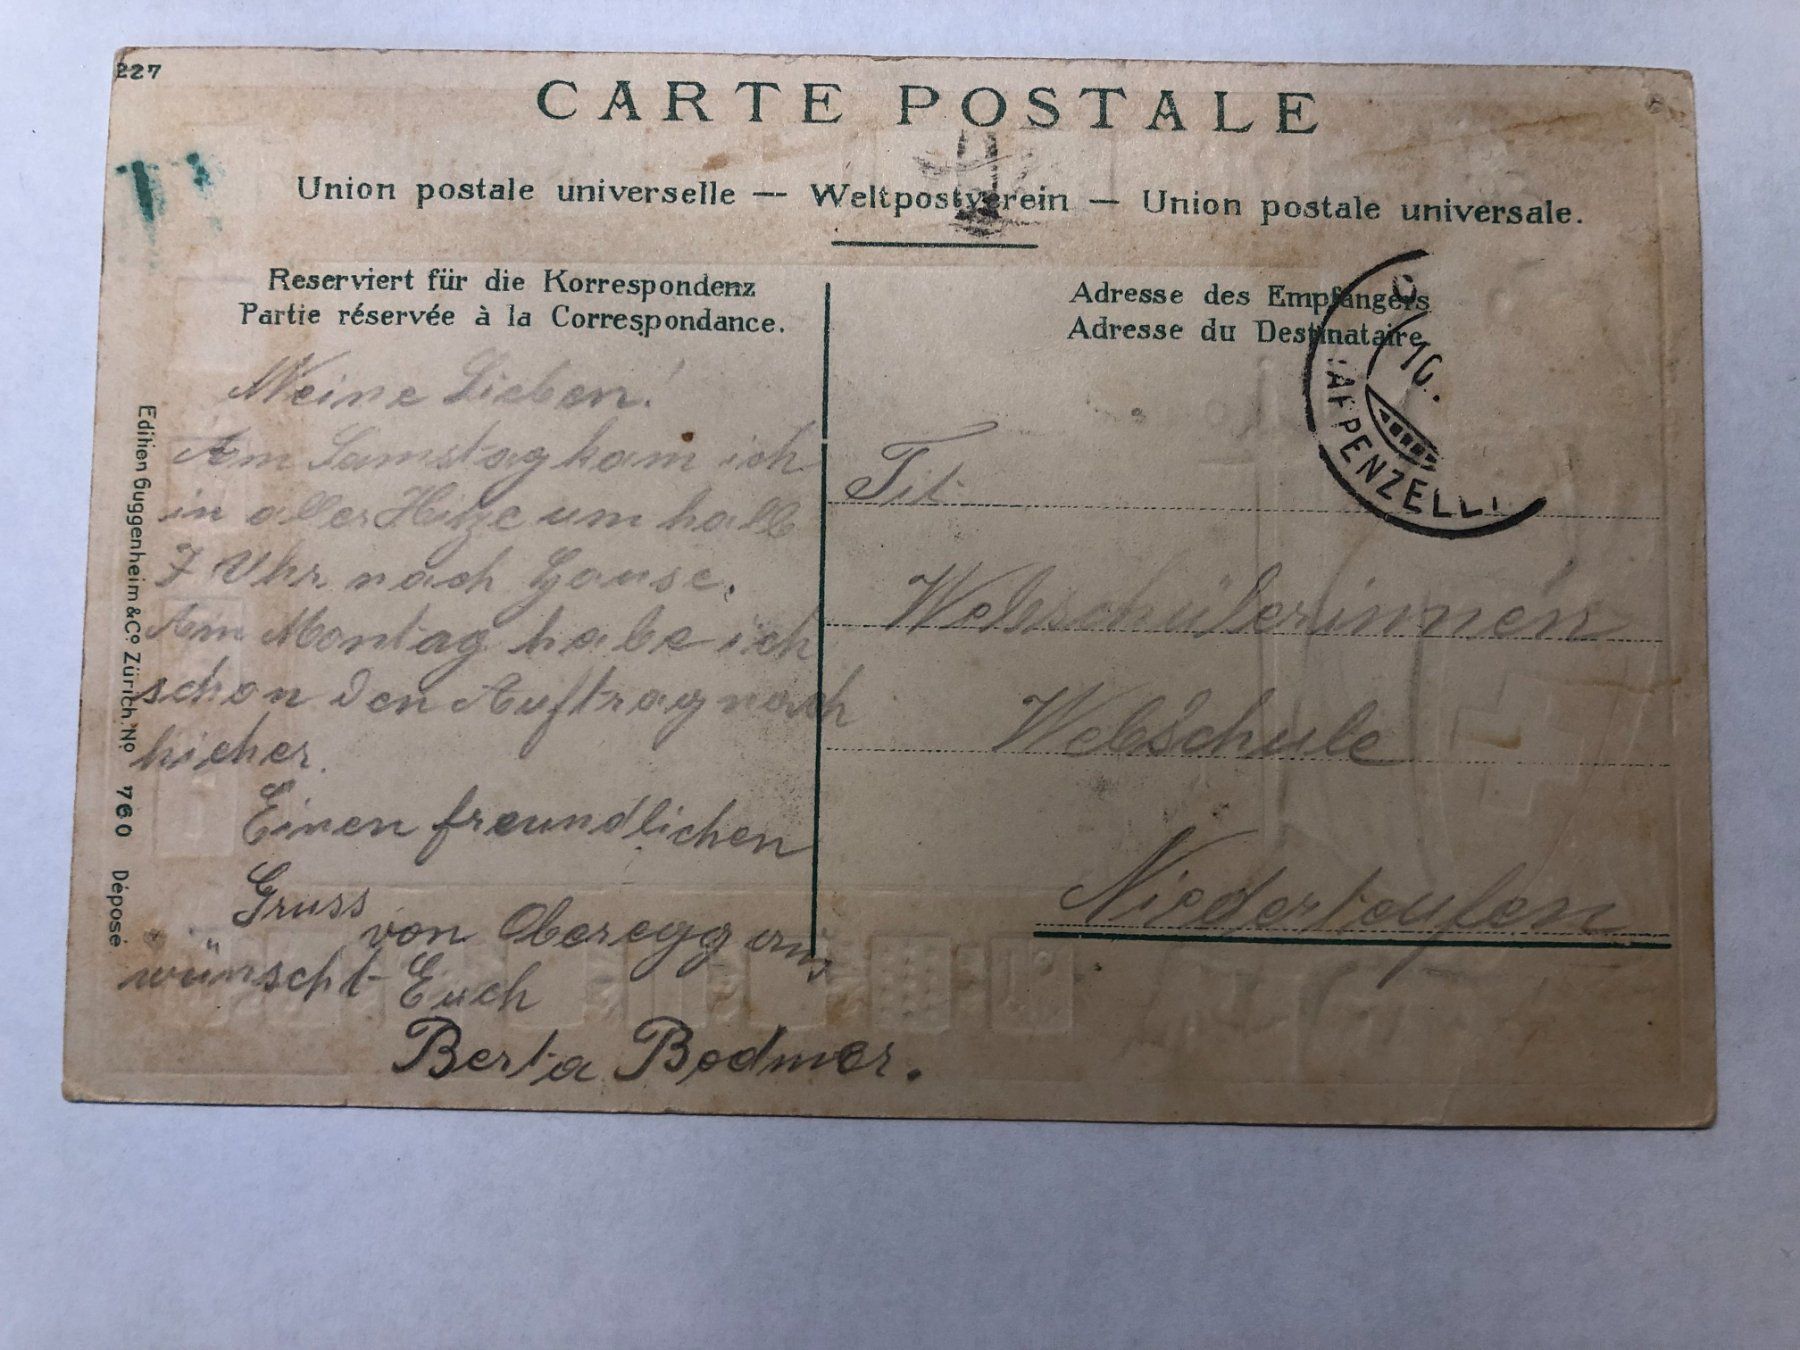 227
CARTE POSTALE
Union postale universelle — Weltpostverein — Union postale universale.
Reserviert für die Korrespondenz
Partie réservée à la Correspondance.
Meine Lieben!
Am Samstag kam ich
in aller Hitze um halb
7 Uhr nach Hause.
Am Montag habe ich
schon den Auftrag nach
hieher.
Einen freundlichen
Gruss
von Oberegg aus
wünscht Euch
Berta Bodmer.
Edition Guggenheim & Co Zürich. No 760 Déposé
Adresse des Empfängers
Adresse du Destinataire.
Tit.
Webschülerinnen
Webschule
Niederteufen
10.
APPENZELL